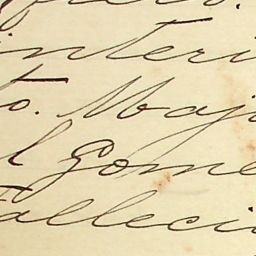 interi
to. Majo
l Gome
Falleci